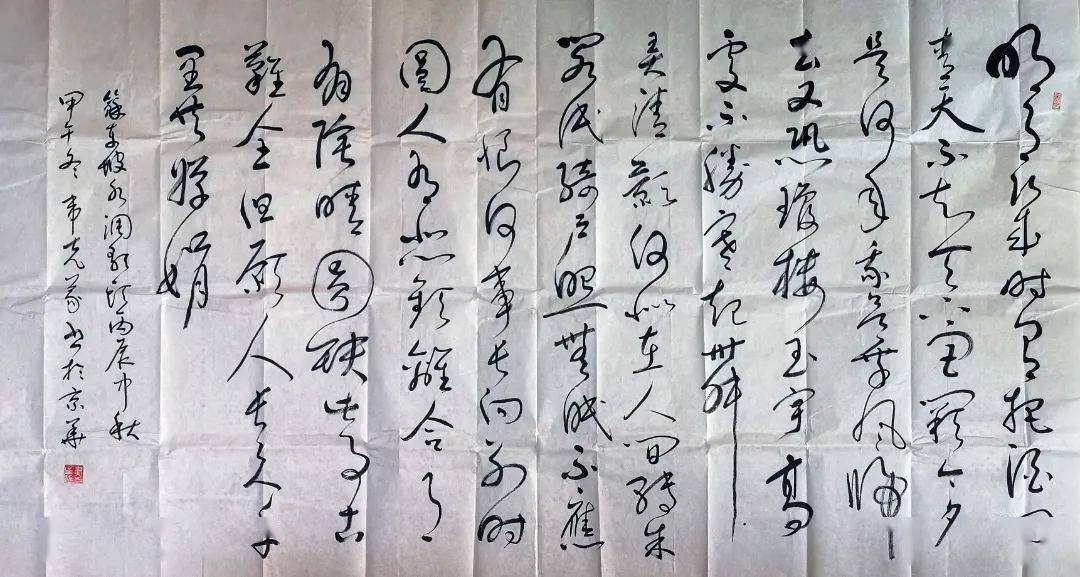 明月幾时有把酒问
青天不知天上宫闕今夕
是何年我欲乘风歸
去又恐瓊楼玉宇高
處不勝寒起舞
弄清影何似在人间轉朱
阁低绮户照無眠不應
有恨何事长向别时
圆人有悲歡離合月
有陰晴圆缺此事古
難全但願人长久千
里共嬋娟
蘇東坡水调歌頭丙辰中秋
甲午冬韦克义书於京華